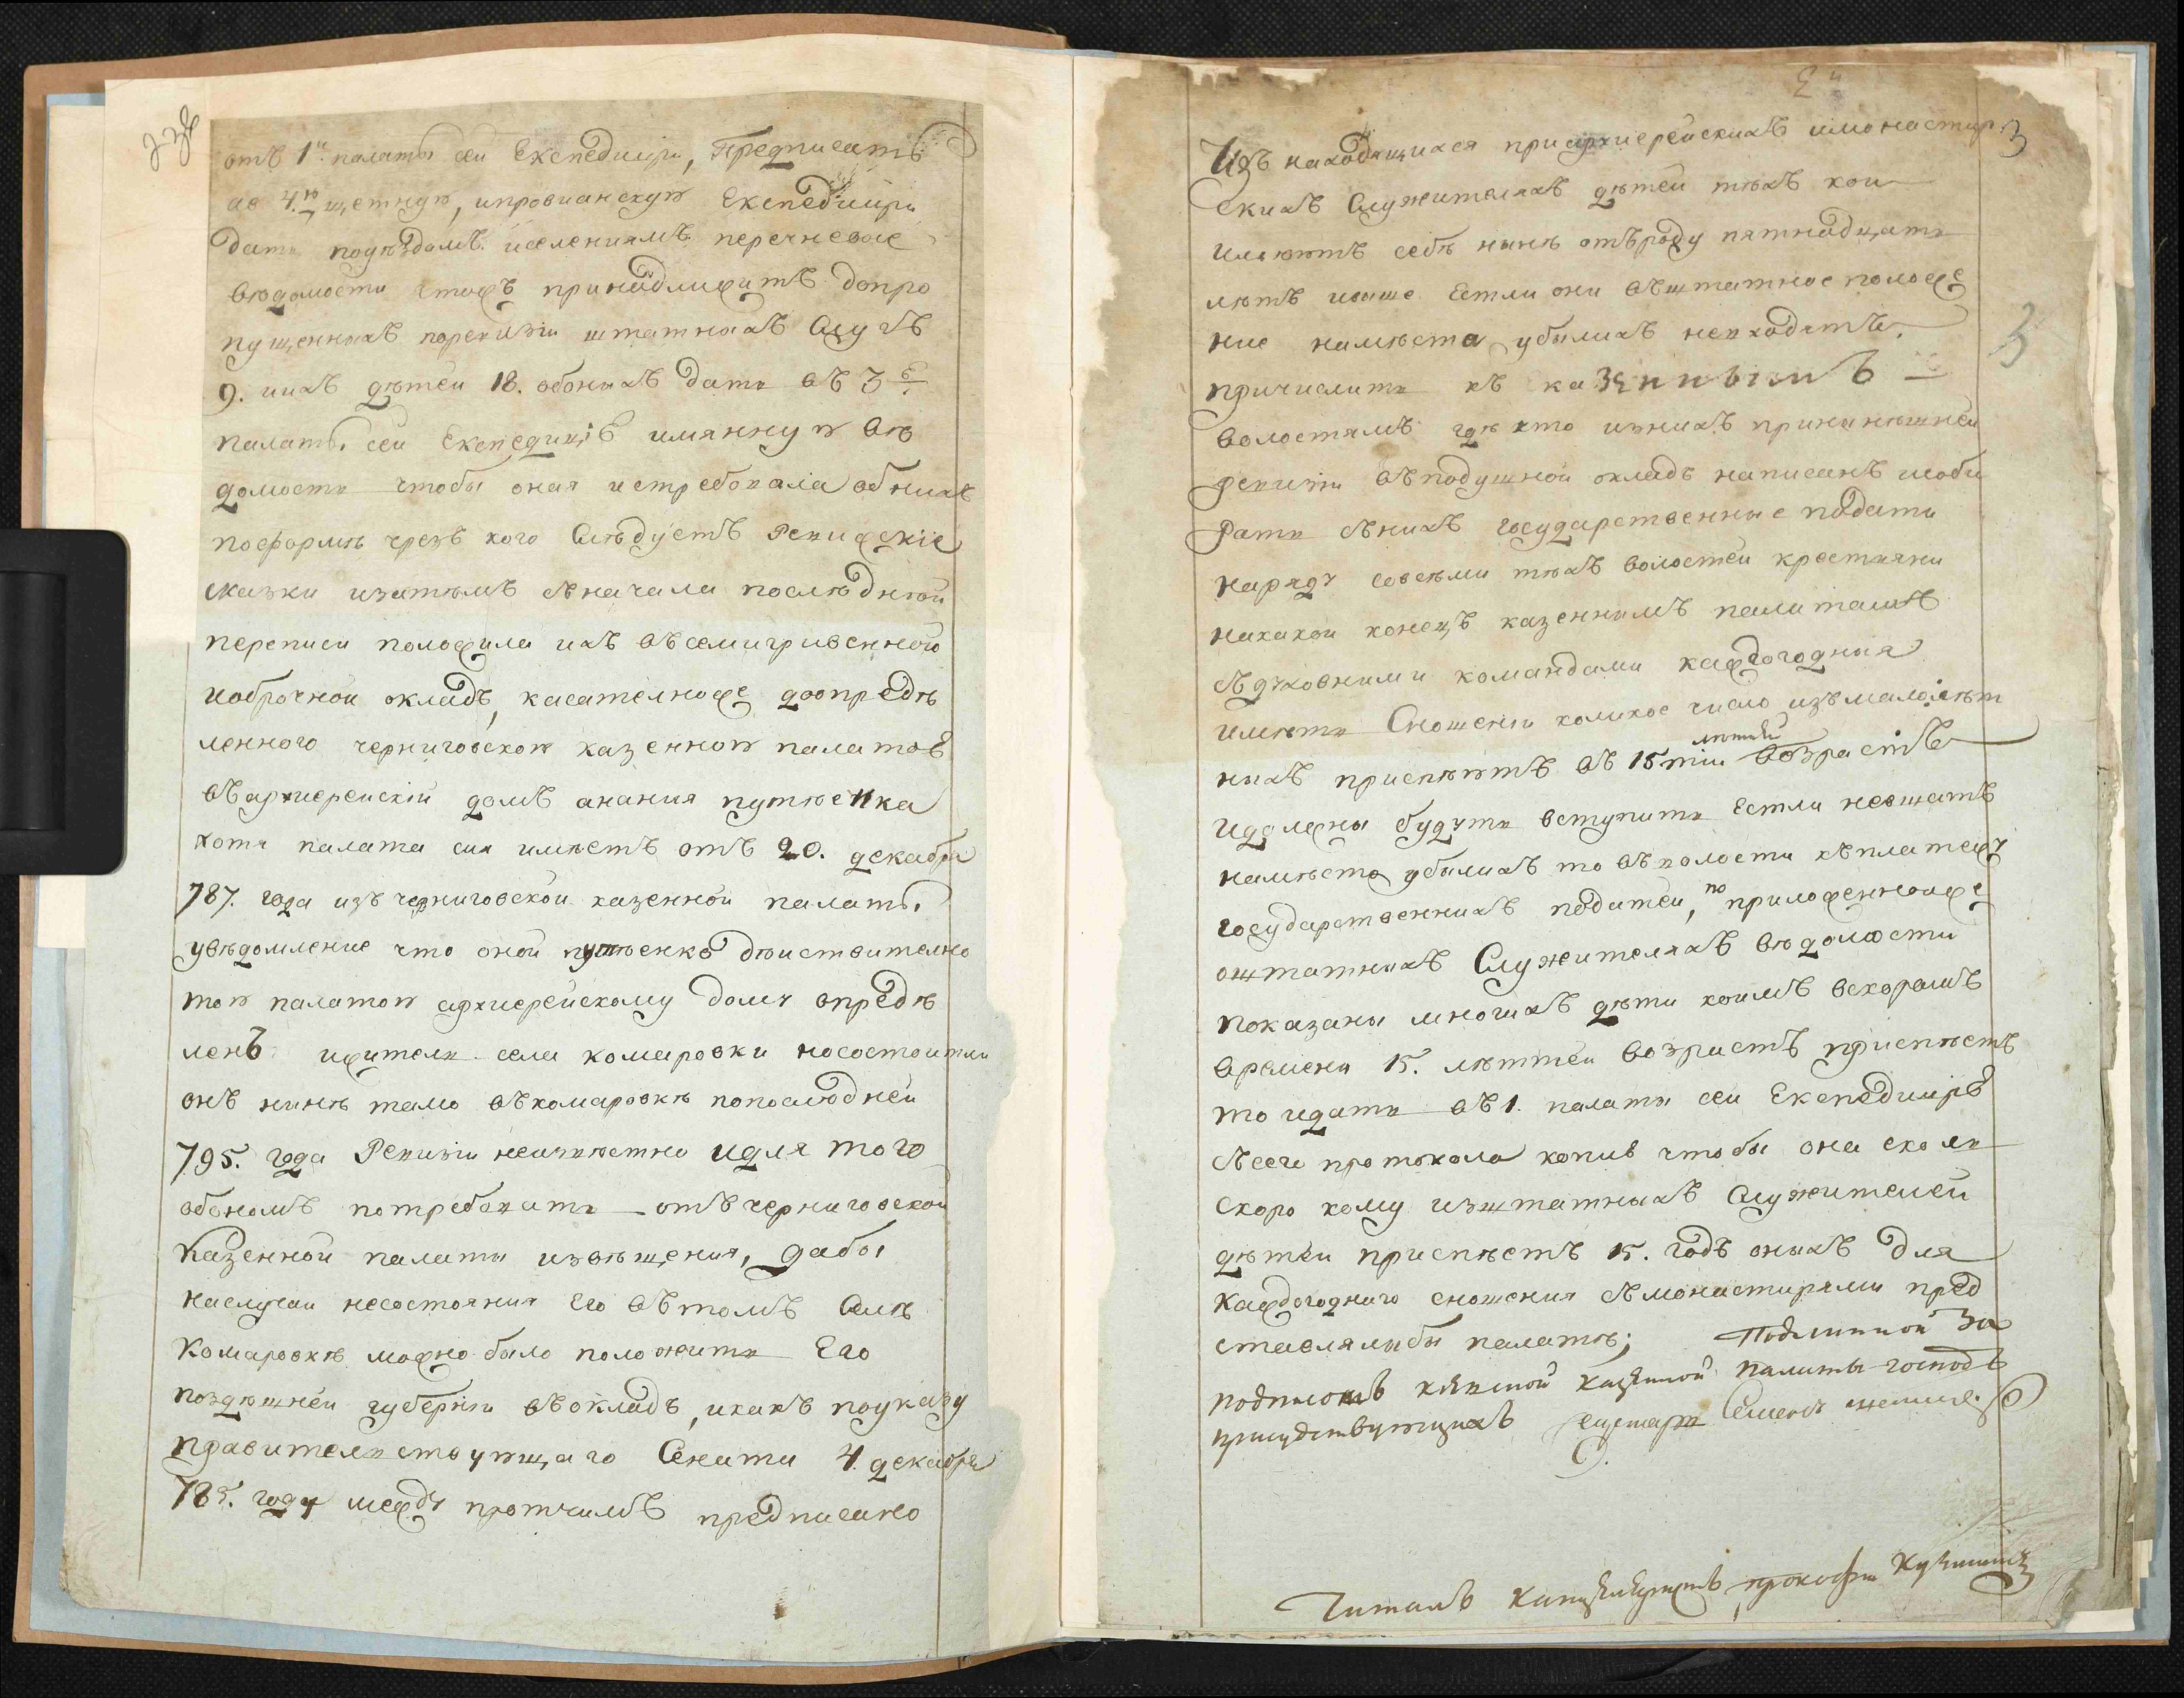 отъ 1й палаты сеи Експедицiи, Предписать
ав 4ю щетную, ипровианскую Експедицiи
дать поуездамъ иселениямъ перечневые
ведомости чтожъ принадлижитъ допро
пущенныхъ поревизiи штатныхъ Слугъ
9. иихъ детеи 18. обоныхъ дать въ 3ю
палаты сеи Експедицiю имянную ве
домость чтобы оная истребовала обнихъ
поеформе чрезъ кого Следуетъ Ревижскiе
сказки изатемъ сначала последнеи
переписи положила ихъ всемигривенного
иоброчнои окладъ, касателноже доопреде
ленного черниговскою казенною палатою
вархиерейскiи домъ анания путvенка
хотя палата сия имеетъ отъ 20. декабря
787. года изъ черниговскои казеннои палаты
уведомление что онои путvенко деиствително
тою палатою архиерейскому дому опреде
ленъ ижитель села комаровкиносостоитли
онъ нине тамо вкомаровке попоследнеи
795. года Ревизiи неизвестно идля того
обономъ потребовать отъ черниговскои
казеннои палаты извещения, дабы
наслучаи несостояния Его втомъ Селе
Комаровке можно было положить Его
поздешнеи губернiи вокладъ, икакъ поуказу
правительствующаго Сената 4. декабря
785. году между протчимъ предписано
3
Изъ находящихся приархиерейскихъ имонастир
скихъ Служителяхъ детеи техъ кои
имеютъ себе ныне отъроду пятнадцать
летъ иваше Естли они вштатное положе
ние наместа убылихъ невходятъ,
причислить къ казеннымъ
волостямъ где кто изнихъ принынешнеи
ревизiи вподушнои окладъ написанъ исоби
рать снихъ государственные подати
наряду совсеми техъ волостеи крестьяни
накакои конецъ казеннымъ палатамъ
сдуховними командами каждогодния
иметь Сношенiи коликое число изъмалолет
нихъ приспеютъ въ 15тии летнеи возрастъ
идолжны будуть вступить Естли невштатъ
наместо убылихъ то вволости кплатежу
государственнихъ податеи, по приложеннойже
оштатныхъ Служителяхъ ведомости
показаны многихъ дети коимъ вскоромъ
времени 15. леттеи возрастъ приспеетъ
то идать въ 1. палаты сеи Експедицiю
Ссего протокола копию чтобы она сколь
скоро кому изштатныхъ Служителеи
детеи приспеетъ 15. годъ оныхъ для
каждогоднего сношения смонастирями пред
ставлялабы палате; Подлинной За
подписомъ киевской казенной палаты господъ
присудствующихъ секретарь Семенъ
Читалъ канцеляристъ прокофiи Кузминъ